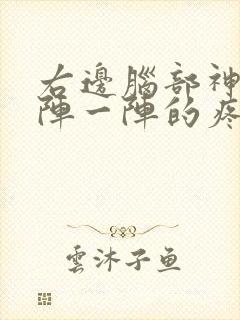 右邊腦部神
陣一陣的疼
雲沐子魚